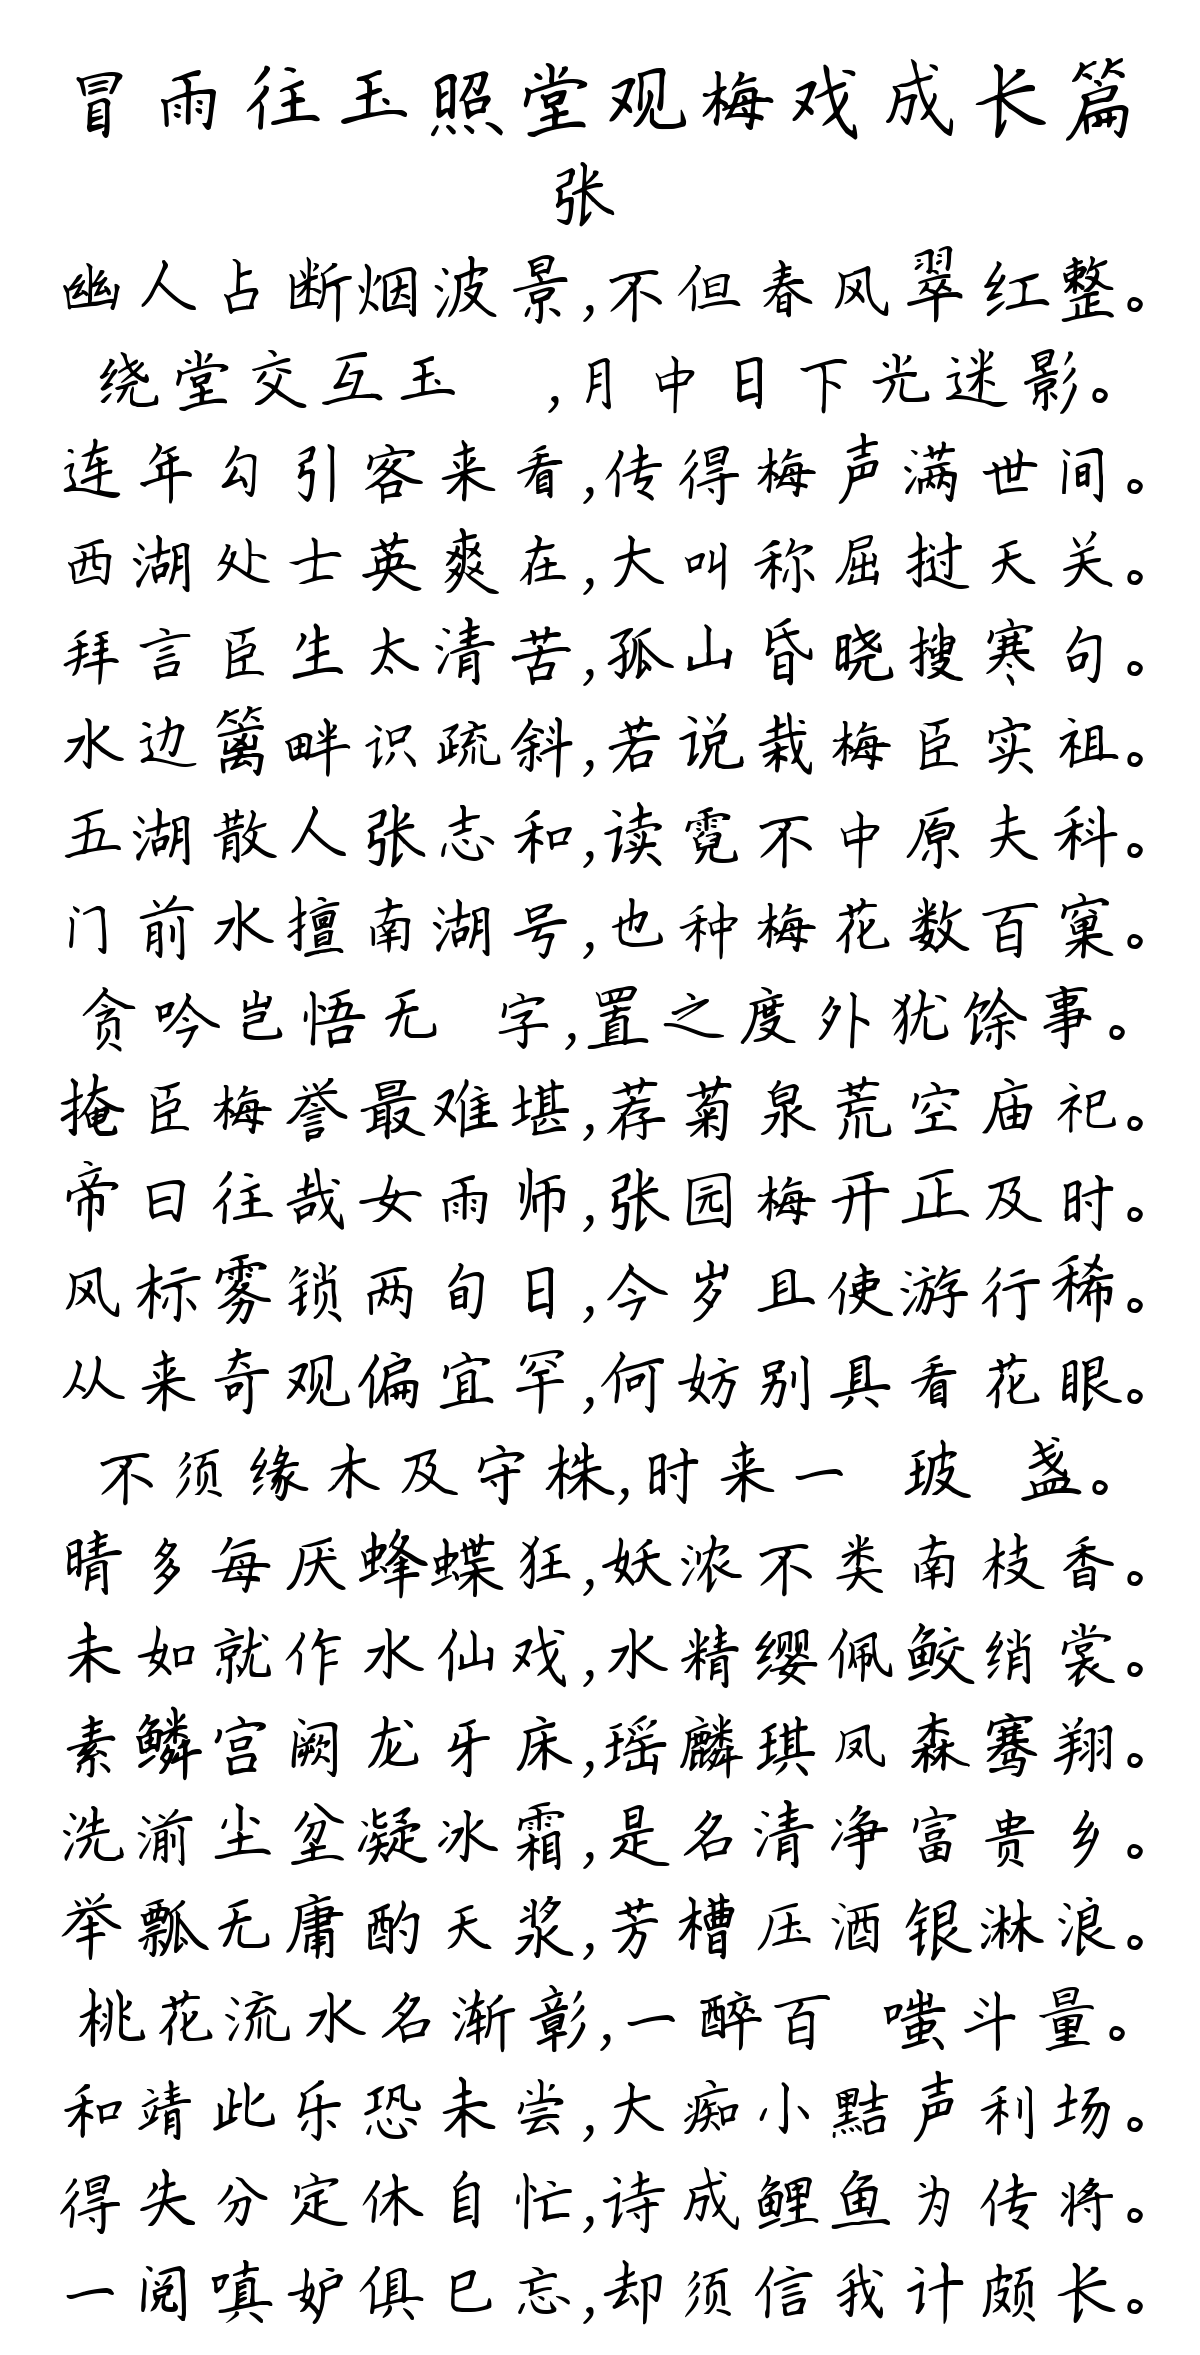 冒雨往玉照堂观梅戏成长篇
张
幽人占断烟波景,不但春风翠红整。
绕堂交互玉 ,月中日下光迷影。
连年勾引客来看,传得梅声满世间。
西湖处士英爽在,大叫称屈挝天关。
拜言臣生太清苦,孤山昏晓搜寒句。
水边篱畔识疏斜,若说栽梅臣实祖。
五湖散人张志和,读霓不中原夫科。
门前水擅南湖号,也种梅花数百窠。
贪吟岂悟无 字,置之度外犹馀事。
掩臣梅誉最难堪,荐菊泉荒空庙祀。
帝曰往哉女雨师,张园梅开正及时。
风标雾锁两旬日,今岁且使游行稀。
从来奇观偏宜罕,何妨别具看花眼。
不须缘木及守株,时来一 玻 盏。
晴多每厌蜂蝶狂,妖浓不类南枝香。
未如就作水仙戏,水精缨佩鲛绡裳。
素鳞宫阙龙牙床,瑶麟琪凤森骞翔。
洗湔尘坌凝冰霜,是名清净富贵乡。
举瓢无庸酌天浆,芳槽压酒银淋浪。
桃花流水名渐彰,一醉百 嗤斗量。
和靖此乐恐未尝,大痴小黠声利场。
得失分定休自忙,诗成鲤鱼为传将。
一阅嗔妒俱已忘,却须信我计颇长。